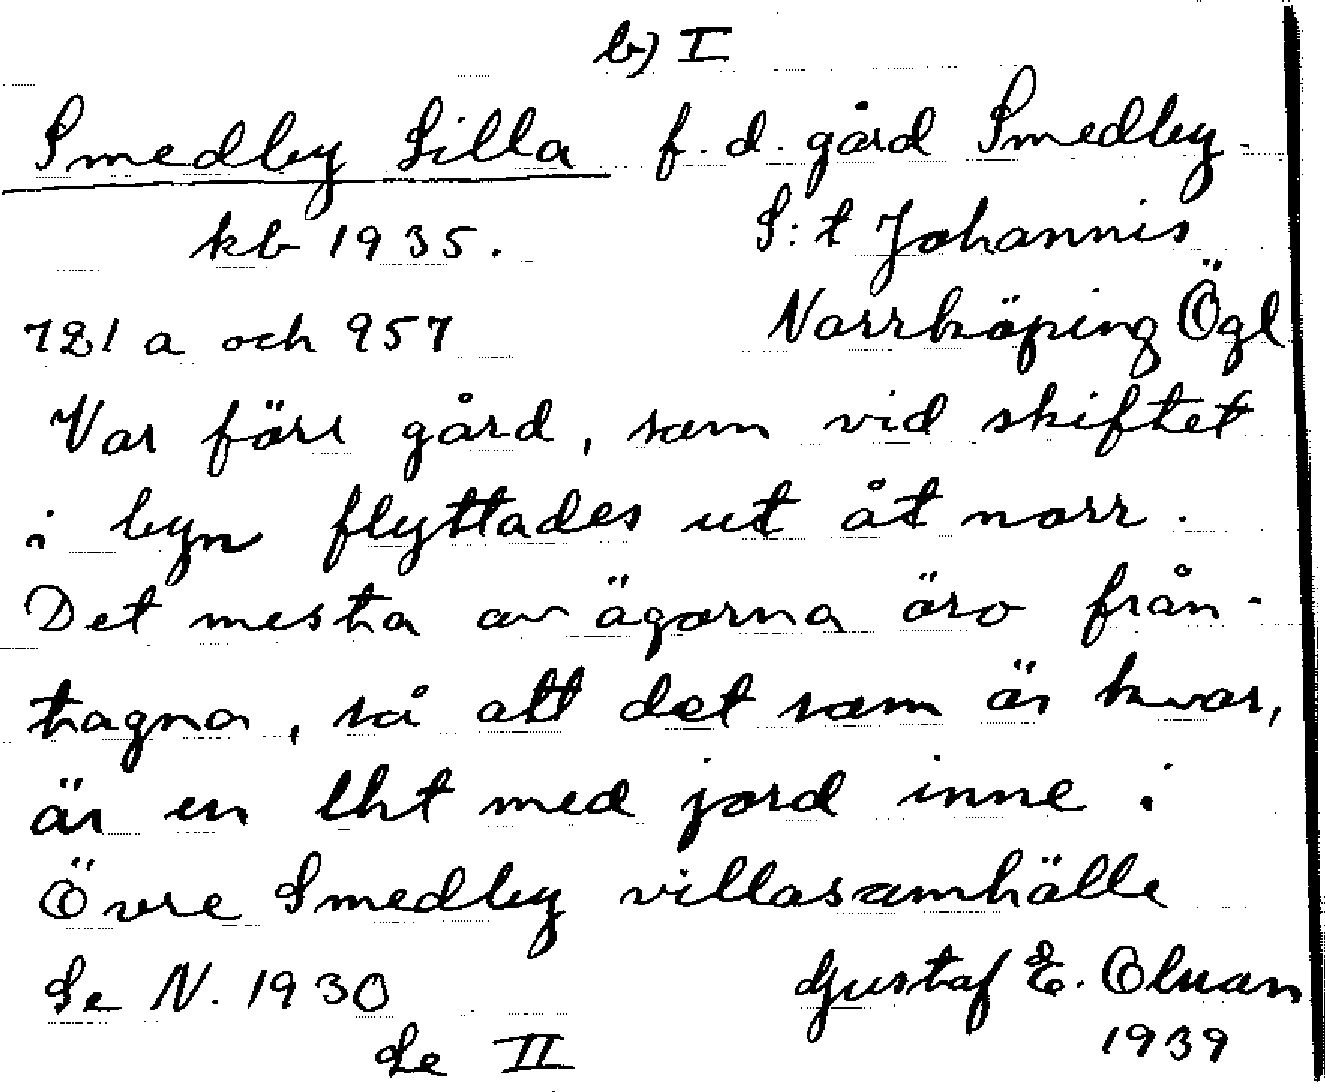 b) I
Smedby Lilla f.d. gård Smedby
kb 1935. S:t Johannis
721 a och 957 Norrköping Ögl
Var förr gård, som vid skiftet
i byn flyttades ut åt norr.
Det mesta av ägorna äro från-
tagna, så att det som är kvar,
är en lht med jord inne i
Övre Smedby villasamhälle
Se N. 1930 Gustaf E.
Se II 1939